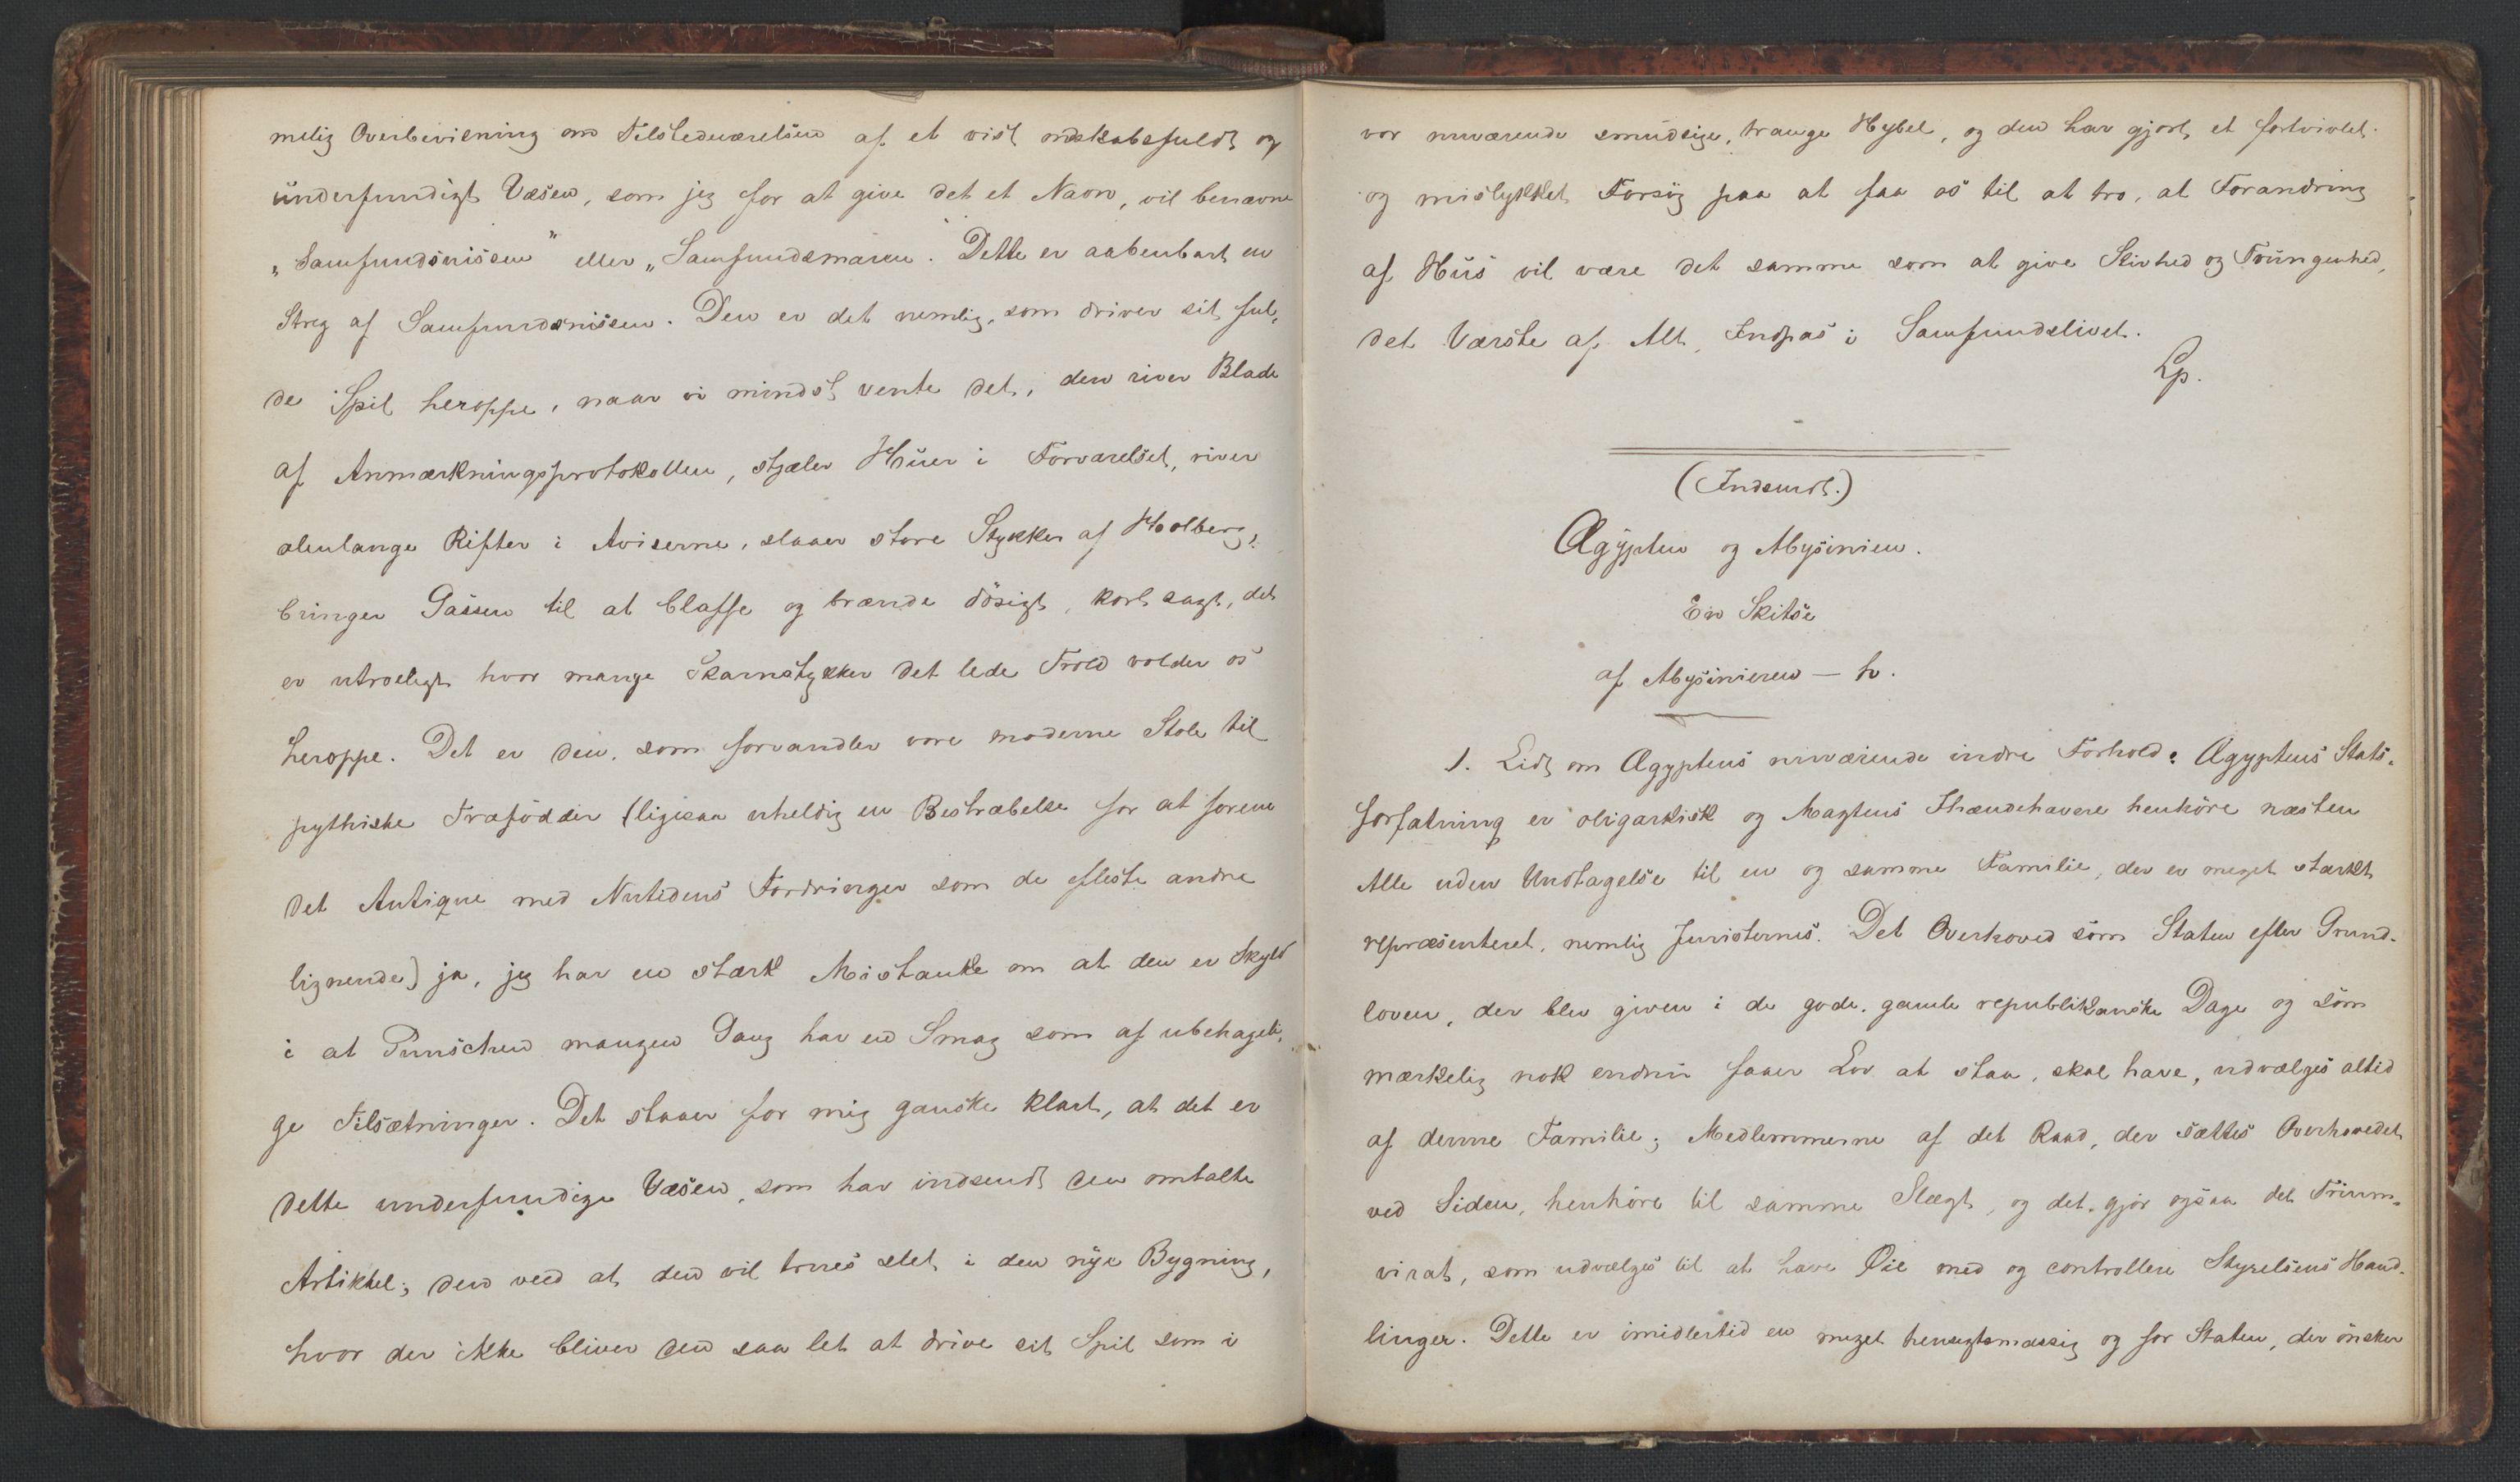 melig Overbeviisning om Tilstedeværelsen af et vist ondskabsfuldt og
underfundigt Væsen, som jeg for at give det et Navn, vil benævne
„Samfundsnissen" eller „Samfundsmaren". Dette er aabenbart en
Streg af Samfundsnissen. Den er det nemlig, som driver sit ful-
de Spil heroppe, naar vi mindst vente det, den river Blade
af Anmærkningsprotokollen, stjæler Huer i Forværelset, river
alenlange Rifter i Aviserne, slaaer store Stykker af Holberg,
bringer Gassen til at blaffe og brænde døsigt, kort sagt, det
er utroeligt hvor mange Skarnstykker det lede Trold volder os
heroppe. Det er den, som forvandler vore moderne Stole til
pythiske Træfødder (ligesaa uheldig en Bestræbelse for at forene
det Antique med Nutidens Fordringer som de fleste andre
lignende) ja, jeg har en stærk Mistanke om at den er Skyld
i at Punschen mangen Gang har en Smag som af ubehageli-
ge Tilsætninger. Det staaer for mig ganske klart, at det er
dette underfundige Væsen, som har indsendt den omtalte
Artikkel; den veed at den vil trives slet i den nye Bygning,
hvor der ikke bliver den saa let at drive sit Spil som i
vor nuværende smudsige, trange Hybel, og den har gjort et fortvivlet
og mislykket Forsøg paa at faa os til at tro, at Forandring
af Huus vil være det samme som at give Stivhed og Tvungenhed,
det Værste af Alt, Indpas i Samfundslivet.
Lp.
(Indsendt.)
Ægypten og Abysinien.
En Skitse
af Abysinieren — h.
1. Lidt om Ægyptens nuværende indre Forhold: Ægyptens Stats-
forfatning er oligarkisk og Magtens Ihændehavere henhöre næsten
Alle uden Undtagelse til en og samme Familie, der er meget stærkt
repræsenteret, nemlig Juristernes. Det Overhoved som Staten efter Grund-
loven, der blev given i de gode, gamle republikanske Dage og som
mærkelig nok endnu faaer Lov at staa, skal have, udvælges altid
af denne Familie; Medlemmerne af det Raad, der sættes Overhovedet
ved Siden, henhöre til samme Slægt, og det gjør ogsaa det Trium-
virat, som udvælges til at have Øie med og controllere Styrelsens Hand-
linger. Dette er imidlertid en meget hensigtsmæssig og for Staten, der önsker